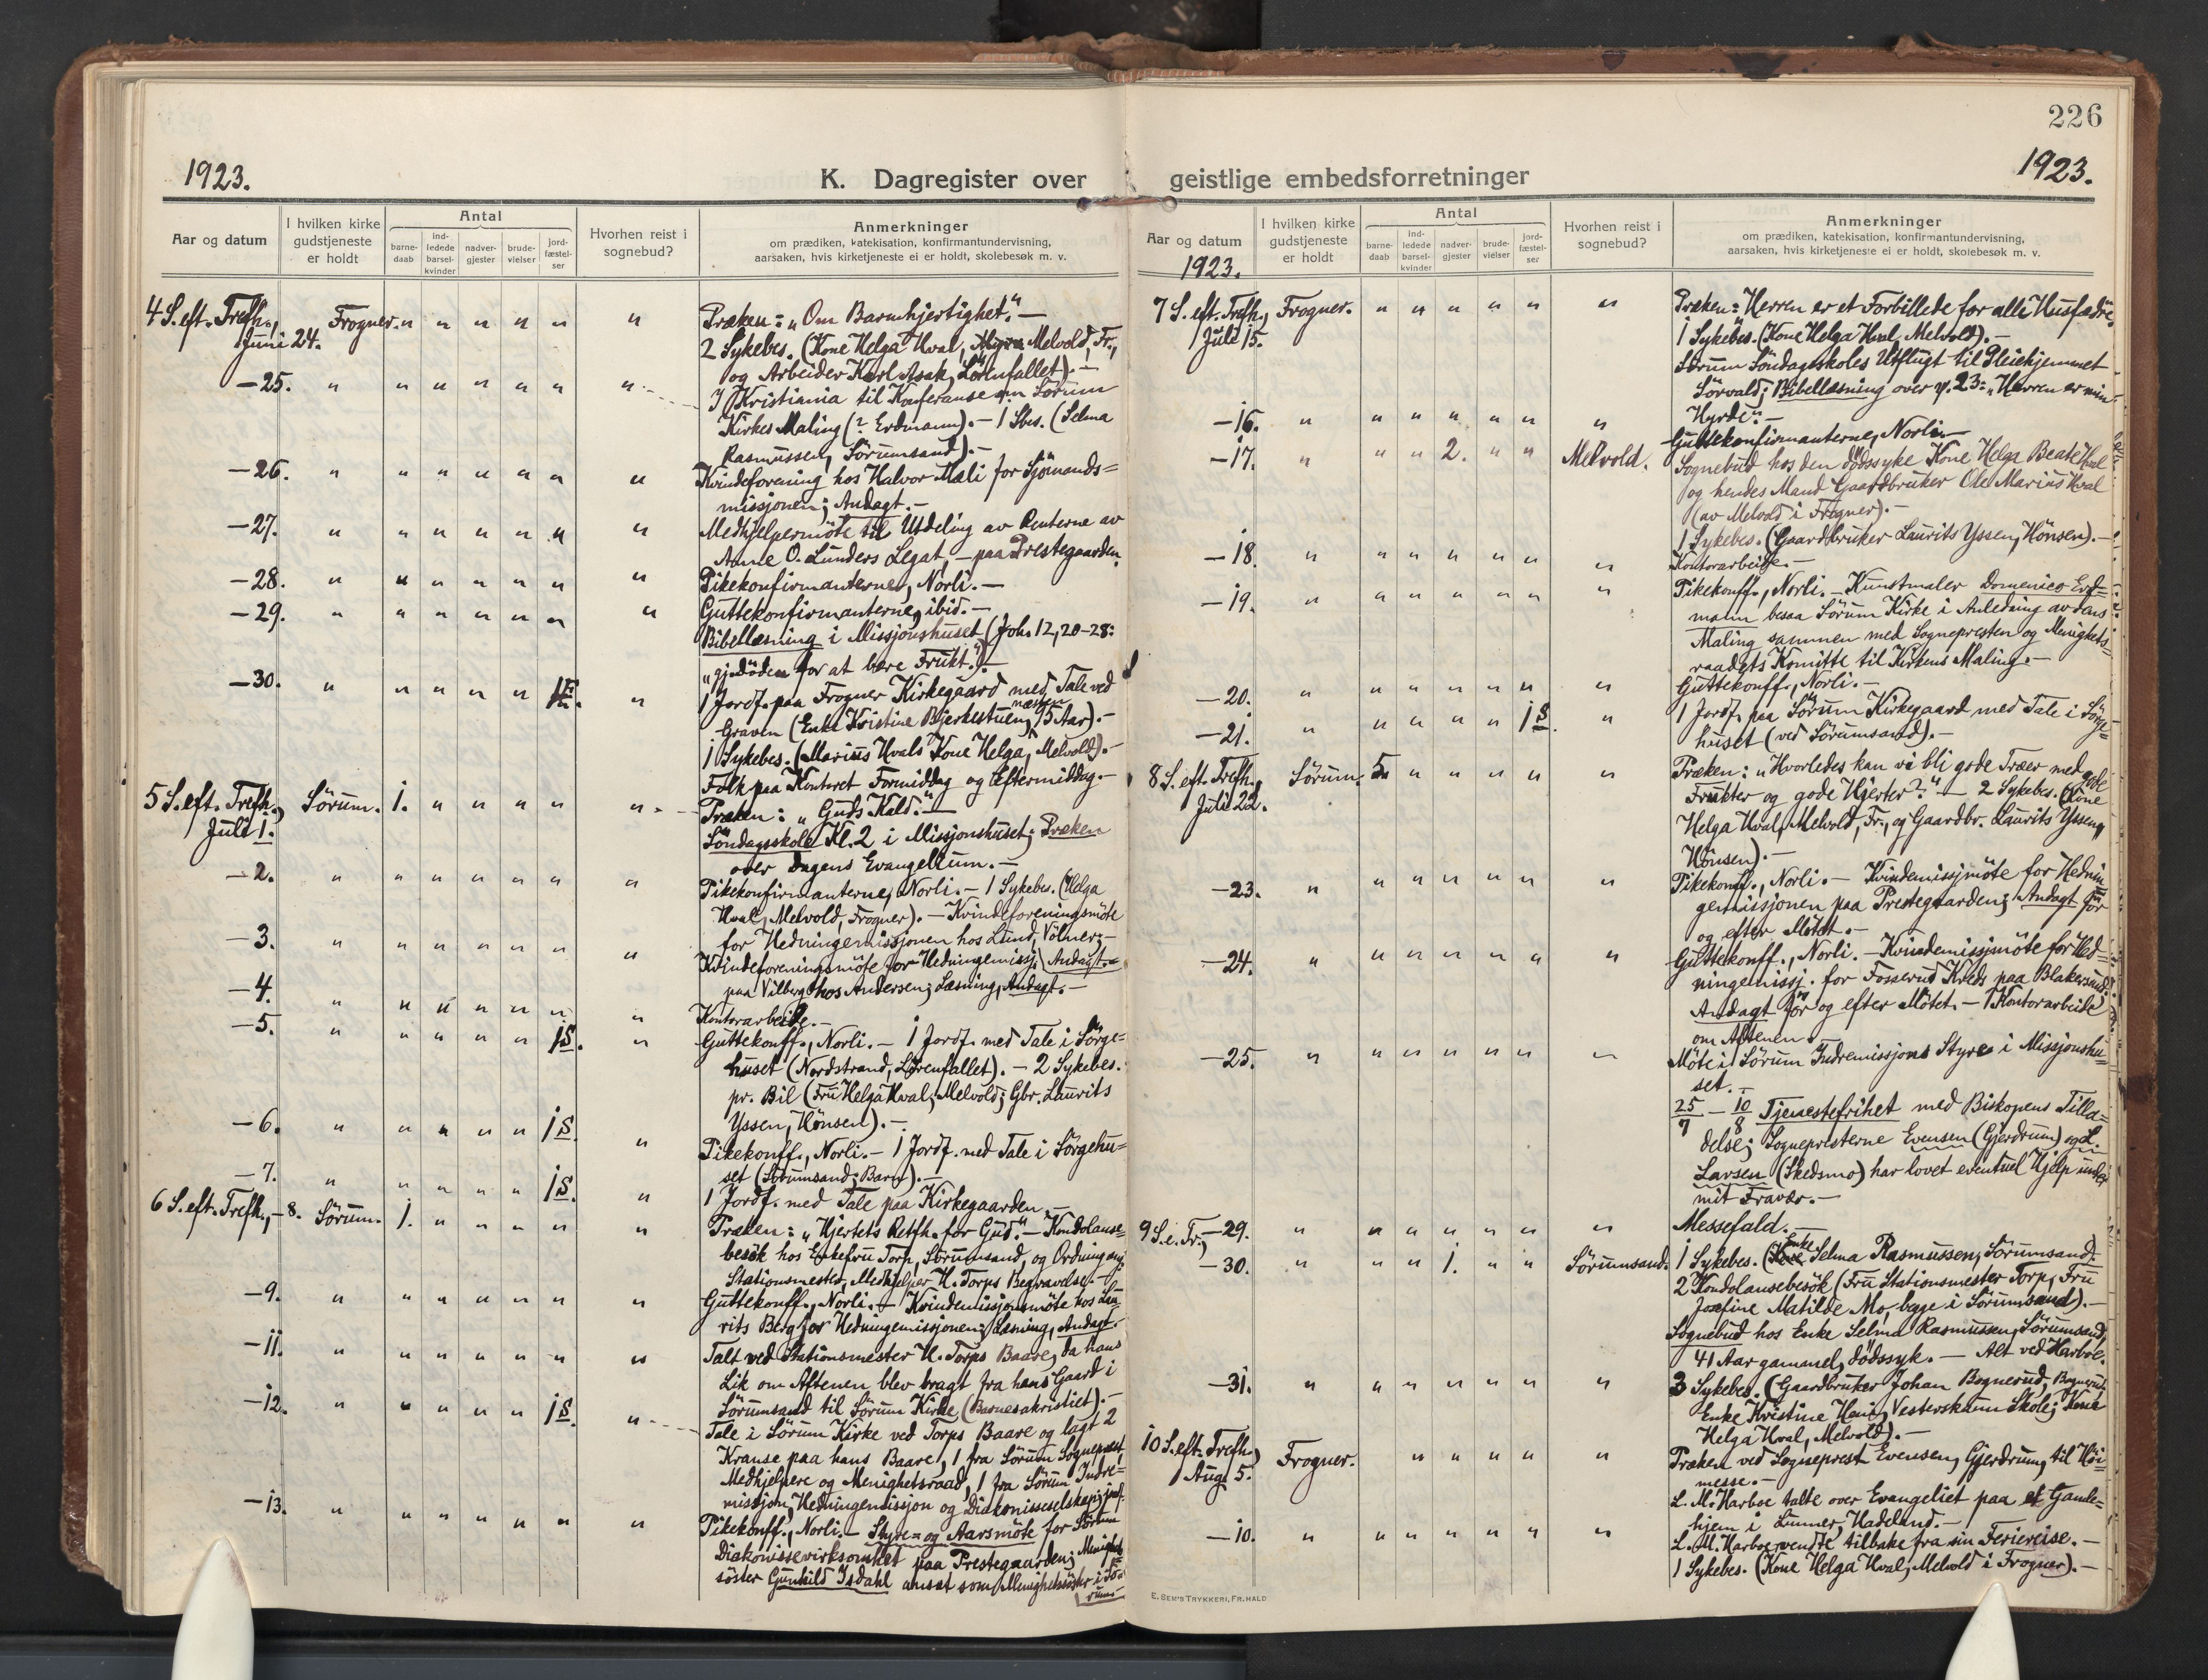 226
1923.
K. Dagregister over geistlige embedsforretninger
1923.
Aar og datum
I hvilken kirke gudstjeneste er holdt
Antal
barne-daab
ind-ledede barsel-kvinder
nadver-gjester
brude-vielser
jord-fæstel-ser
Hvorhen reist i sognebud?
Anmerkninger
om prædiken, katekisation, konfirmantundervisning,
aarsaken, hvis kirketjeneste ei er holdt, skolebesøk m. v.
4 S. eft. Trefh., Frogner. " " " " " " Præken: "Om Barmhjertighet." —
Juni 24. 2 Sykebes. (Kone Helga Hval, Melvold, Fr.,
og Arbeider Karl Asak, Lörenfallet). —
—25. " " " " " " " I Kristiania til Konferanse om Sörum
Kirkes Maling (? Erdmann). — 1 Sbes. (Selma
Rasmussen, Sörumsand). —
—26. " " " " " " " Kvindeforening hos Halvor Mæli for Sjömands=
missjonen; Andagt. —
—27. " " " " " " " Medhjelpermöte til Utdeling av Renterne av
Anne O. Lunders Legat, — paa Prestegaarden.
—28. " " " " " " " Pikekonfirmanterne, Norli. —
—29. " " " " " " " Guttekonfirmanterne, ibid. —
Bibellæsning i Missjonshuset (Joh. 12, 20–28:
"gj. döden for at bære Frukt."). —
—30. " " " " " 1F. " 1 Jordf. paa Frogner Kirkegaard med Tale ved
Graven (Enke Kristine Bjerkestuen, næsten 95 Aar). —
1 Sykebes. (Marius Hvals Kone Helga, Melvold). —
Folk paa Kontoret Formiddag og Eftermiddag. —
5 S. eft. Trefh., Sörum. 1. " " " " " Præken: "Guds Kald." —
Juli 1. Söndagsskole Kl. 2 i Missjonshuset; Præken
over Dagens Evangelium. —
—2. " " " " " " " Pikekonfirmanterne, Norli. — 1 Sykebes. (Helga
Hval, Melvold, Frogner). — Kvindeforeningsmöte
for Hedningemissjonen hos Lund, Völner; —
—3. " " " " " " " Kvindeforeningsmöte for Hedningemissj. Andagt. —
paa Vilberg hos Andersen; Læsning, Andagt. —
—4. " " " " " " " Kontorarbeide. —
—5. " " " " " 1S. " Guttekonff., Norli. — 1 Jordf. med Tale i Sörge=
huset (Nordstrand, Lörenfallet). — 2 Sykebes.
pr. Bil (Fru Helga Hval, Melvold; Gbr. Laurits
Yssen, Hönsen). —
—6. " " " " " 1S. " Pikekonff., Norli. — 1 Jordf. med Tale i Sörgehu=
set (Sörumsand; Barn). —
—7. " " " " " 1S. " 1 Jordf. med Tale paa Kirkegaarden. —
6 S. eft. Trefh., —8. Sörum. 1. " " " " " Præken: "Hjertets Retfh. for Gud." — Kondolanse=
besök hos Enkefru Torp, Sörumsand, og Ordning ang.
Stationsmester, Medhjelper H. Torps Begravelse. —
—9. " " " " " " " Guttekonff., Norli. — Kvindemissjonsmöte hos Lau=
rits Berg for Hedningemissjonen; Læsning, Andagt. —
—11. " " " " " " " Talt ved Stationsmester H. Torps Baare, da hans
Lik om Aftenen blev bragt fra hans Gaard i
Sörumsand til Sörum Kirke (Barnesakristiet). —
—12. " " " " " 1S. " Tale i Sörum Kirke ved Torps Baare og lagt 2
Kranse paa hans Baare, 1 fra Sörum Sogneprest,
Medhjelpere og Menighetsraad, 1 fra Sörum Indre=
missjon, Hedningemissjon og Diakonisseselskap; jordf.
—13. " " " " " " " Pikekonff., Norli. — Styre= og Aarsmöte for Sörum
Diakonissevirksomhet paa Prestegaarden; Menighets=
söster Gunhild Isdahl ansat som Menighetssöster i Sö=
rum.
Aar og datum
1923.
I hvilken kirke gudstjeneste er holdt
Antal
barne-daab
ind-ledede barsel-kvinder
nadver-gjester
brude-vielser
jord-fæstel-ser
Hvorhen reist i sognebud?
Anmerkninger
om prædiken, katekisation, konfirmantundervisning,
aarsaken, hvis kirketjeneste ei er holdt, skolebesøk m. v.
7 S. eft. Trefh., Frogner. " " " " " " Præken: "Herren er et Forbillede for alle Husfædre."
Juli 15. 1 Sykebes. (Kone Helga Hval, Melvold). —
Sörum Söndagsskoles Utflugt til Pleiehjemmet
Sörvald; Bibellæsning over ψ. 23: "Herren er min
Hyrde." —
—16. " " " " " " " Guttekonfirmanterne, Norli. —
—17. " " " 2. " " Melvold. Sognebud hos den dödssyke Kone Helga Beate Hval
og hendes Mand Gaardbruker Ole Marius Hval
(av Melvold i Frogner). —
1 Sykebes. (Gaardbruker Laurits Yssen, Hönsen). —
—18. " " " " " " " Kontorarbeide. —
—19. " " " " " " " Pikekonff., Norli. — Kunstmaler Domenico Erd=
mann besaa Sörum Kirke i Anledning av dens
Maling sammen med Sognepresten og Menighets=
raadets Komitte til Kirkens Maling. —
—20. " " " " " " " Guttekonff., Norli. —
—21. " " " " " 1S. " 1 Jordf. paa Sörum Kirkegaard med Tale i Sörge=
huset (ved Sörumsand). —
8 S. eft. Trefh., Sörum. 5. " " " " " Præken: "Hvorledes kan vi bli gode Træer med gode
Juli 22. Frukter og gode Hjerter?" — 2 Sykebes. (Kone
Helga Hval, Melvold, Fr., og Gaardbr. Laurits Yssen,
Hönsen). —
—23. " " " " " " " Pikekonff., Norli. — Kvindemissjmöte for Hednin=
gemissjonen paa Prestegaarden; Andagt för
og efter Mötet. —
—24. " " " " " " " Guttekonff., Norli. — Kvindemissjmöte for Hed=
ningemissj. for Fosserud Kreds paa Blakersund.
Andagt för og efter Mötet. — Kontorarbeide
om Aftenen.
—25. " " " " " " " Möte i Sörum Indremissjons Styre i Missjonshu=
set. —
25/7 — 10/8 Tjenestefrihet med Biskopens Tilla=
delse; Sognepresterne Evensen (Gjerdrum) og L.
Larsen (Skedsmo) har lovet eventuel Hjelp under
mit Fravær. —
9 S. e. Tr., —29. " " " " " " " Messefald. —
—30. " " " 1. " " Sörumsand. 1 Sykebes. (Enke Selma Rasmussen, Sörumsand.
2 Kondolansebesök (Fru Stationsmester Torp, Fru
Josefine Matilde Mo, begge i Sörumsand). —
Sognebud hos Enke Selma Rasmussen, Sörumsand,
41 Aar gammel, dödssyk. — Alt ved Harboe.
—31. " " " " " " " 3 Sykebes. (Gaardbruker Johan Bognerud, Bognerud,
Enke Kristine Henig, Vesterskaun Skole; Kone
Helga Hval, Melvold). —
10 S. eft. Trefh., Frogner. " " " " " Præken ved Sogneprest Evensen, Gjerdrum, til Höi=
Aug. 5. messe. —
L. M. Harboe talte over Evangeliet paa et Gamle=
hjem i Lunner, Hadeland. —
—10. " " " " " " " L. M. Harboe vendte tilbake fra sin Feriereise. —
1 Sykebes. (Kone Helga Hval, Melvold i Frogner). —
E. SEM'S TRYKKERI, FR. HALD